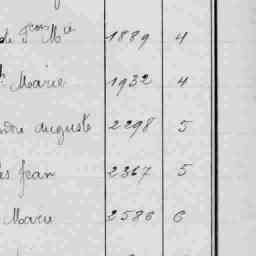 de Jean Mie 1889 4
Marie 1932 4
auguste 2298 5
Jean 2367 5
Marie 2586 6